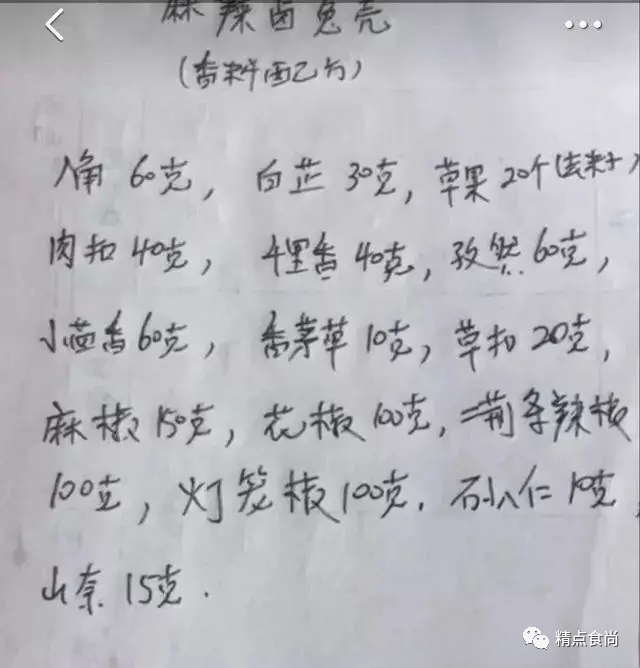 麻辣卤兔壳
(香料配方)
八角 60克, 白芷 30克, 草果 20个(去籽)
肉扣 40克, 千里香 40克, 孜然 60克,
小茴香 60克, 香茅草 10克, 草扣 20克,
麻椒 150克, 花椒 100克, 二荆条辣椒
100克, 灯笼椒 100克. 石小仁 10克,
山奈 15克.
精点食尚